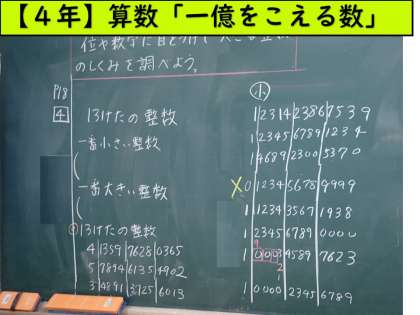 【4年】算数「一億をこえる数」
位や数字に目をつけて大きな整数
のしくみを調べよう。
P18
4
13けたの整数
一番小さい整数
(
一番大きい整数
(
13けたの整数
4 1359 7628 0365
5 7894 6135 4902
3 4891 3725 6013
小
1 2314 2386 7539
1 2345 6789 1234
1 4689 2300 5370
× 0 1234 5678 9999
1 1234 3567 1938
1 2345 6789 0000
1 0003 4589 7623
2
1 0000 2345 6789